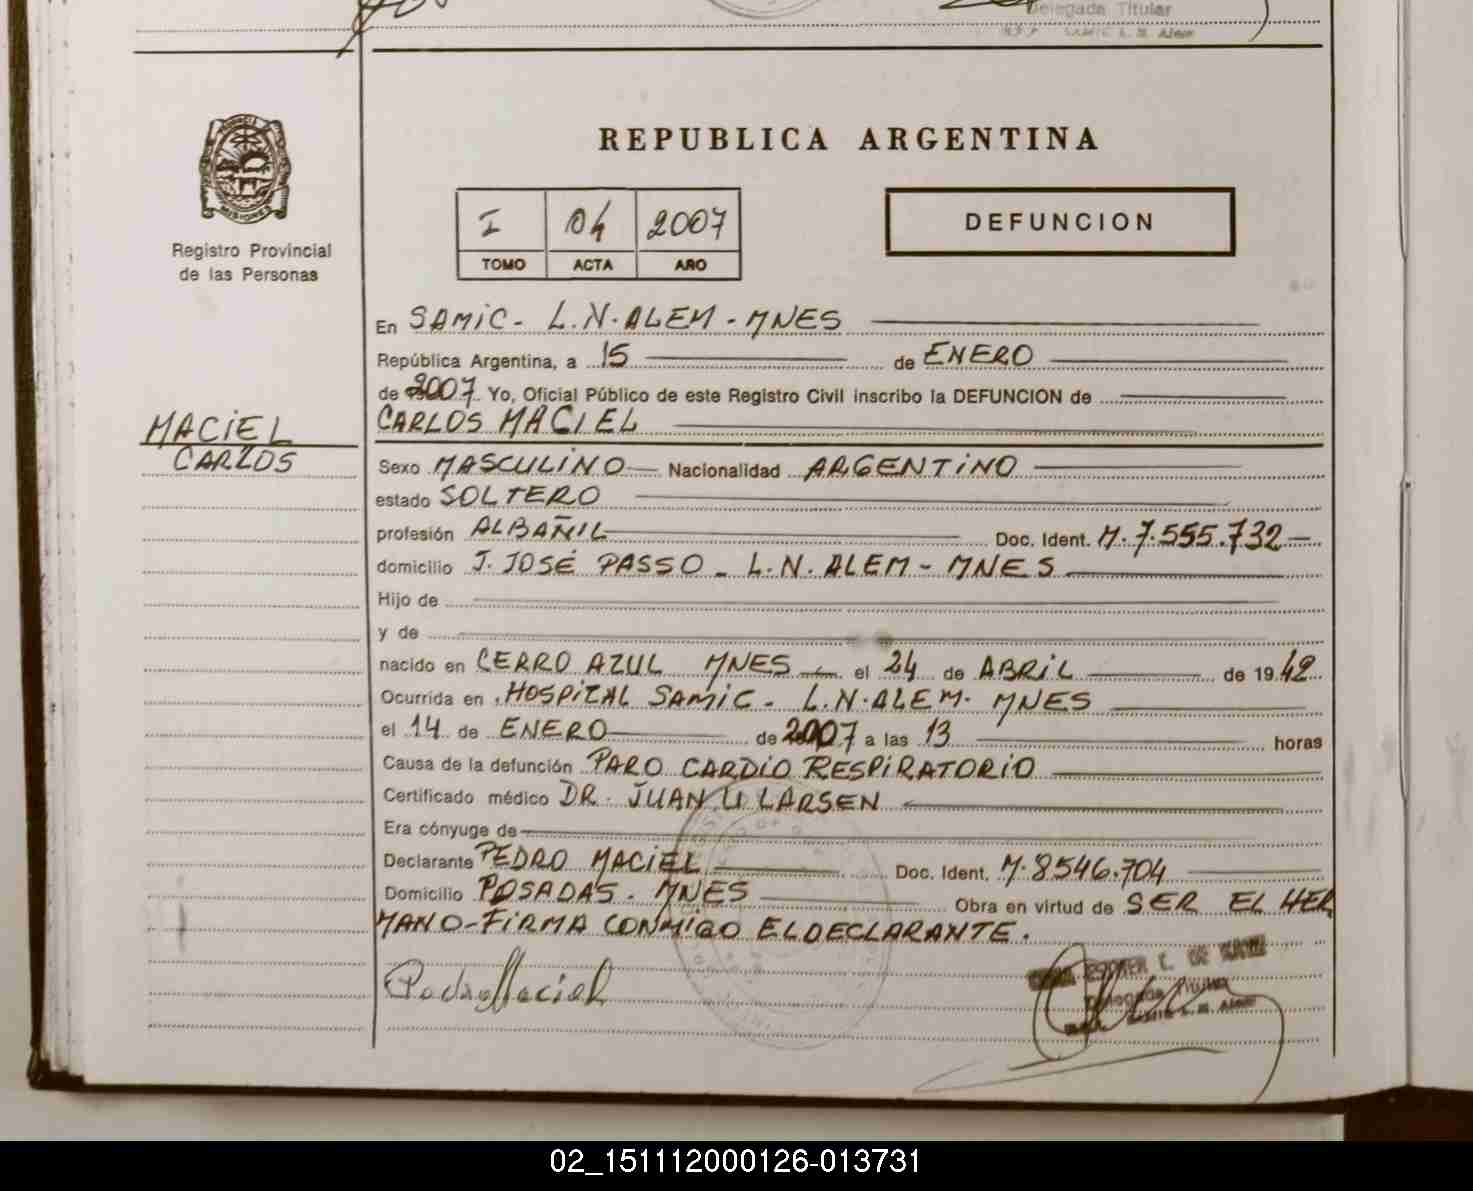 Delegada Titular
SAMIC L. N. Alem
MISIONES
Registro Provincial
de las Personas
REPUBLICA ARGENTINA
I 04 2007
TOMO ACTA AÑO
DEFUNCION
En SAMIC - L.N. ALEM - MNES
República Argentina, a 15 de ENERO
de 2007 Yo, Oficial Público de este Registro Civil inscribo la DEFUNCION de
CARLOS MACIEL
MACIEL
CARLOS
Sexo MASCULINO Nacionalidad ARGENTINO
estado SOLTERO
profesión ALBAÑIL Doc. Ident. M. 7.555.732
domicilio J. JOSÉ PASSO - L.N. ALEM - MNES
Hijo de
y de
nacido en CERRO AZUL MNES el 24 de ABRIL de 1942
Ocurrida en HOSPITAL SAMIC - L.N. ALEM. MNES
el 14 de ENERO de 2007 a las 13 horas
Causa de la defunción PARO CARDIO RESPIRATORIO
Certificado médico DR. JUAN U LARSEN
Era cónyuge de
Declarante PEDRO MACIEL Doc. Ident. M. 8546.704
Domicilio POSADAS. MNES Obra en virtud de SER EL HER
MANO-FIRMA CONMIGO EL DECLARANTE.
Pedro Maciel
ESTHER E. DE
Delegada Titular
SAMIC L. N. Alem
02_151112000126-013731